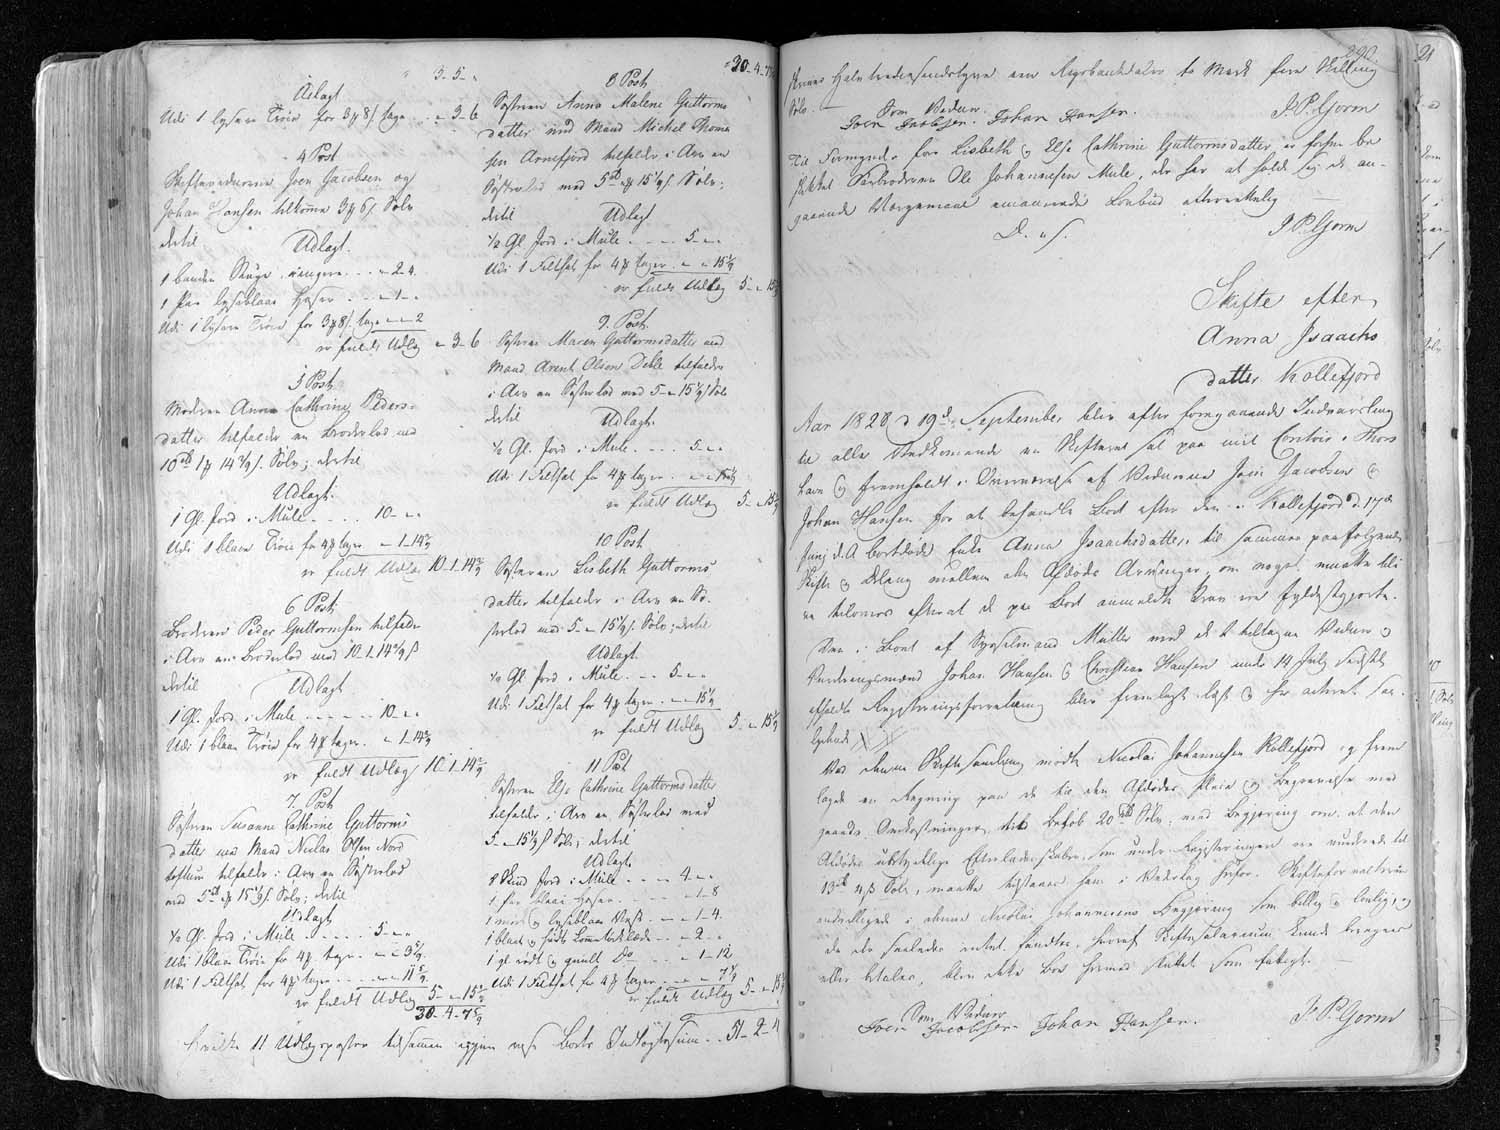 " 3-5-"
Udlagt
Udi 1 lysere Trøie for 3 # 8 ß tage .. " 3-6
4 Post
Skiftevidnerne Joen Jacobsen og
Johan Hansen tilkomme 3 # 6 ß Sølv
dertil
Udlagt.
1 baaden Kuge, ringere ... " 2-4.
1 Par lyseblaae Hoser .... " 1 "
Udi 1 lysere Trøie for 3 # 8 ß tage " " 2
er fuldt Udlæg " 3-6
5 Post
Moderen Anna Cathrine Peders-
datter tilfalder en Broderlod med
10 rd 1 # 14 2/9 ß Sølv; dertil
Udlagt.
1 Gl. Jord i Mule .... 10 " "
Udi 1 blaae Trøie for 4 # tager " 1-14 2/9
er fuldt Udlæg 10-1-14 2/9
6 Post
Broderen Peder Guttormsen tilfalder
i Arv en Broderlod med 10-1-14 2/9 ß
dertil
Udlagt
1 Gl. Jord i Mule ..... 10 " "
Udi 1 blaae Trøie for 4 # tager " 1-14 2/9
er fuldt Udlæg 10-1-14 2/9
7. Post
Søsteren Susanne Cathrine Guttorms
datter med Mand Niclas Olsen Nord
tilfalder i Arv en Søsterlod
med 5 rd " # 15 1/9 ß Sølv; dertil
Udlagt
1/2 Gl. Jord i Mule ..... 5 " "
Udi 1 blaae Trøie for 4 # tager " " 3 5/9
Udi 1 Feltsæk for 4 # tager ... " " 11 5/9
er fuldt Udlæg 5 " " 15 1/9
30-4-7 5/9
" 30-4-7 5/9
8 Post
Søsteren Anna Malene Guttorms
datter med Mand Michel Thoma
sen Arnefjord tilfalder i Arv en
Søsterlod med 5 rd " # 15 1/9 ß Sølv;
dertil
Udlagt
1/2 Gl. Jord i Mule .... 5 " "
Udi 1 Feltsæk for 4 # tager " " 15 1/9
er fuldt Udlæg 5 " 15 1/9
9. Post.
Søsteren Maren Guttormsdatter med
Mand Arent Olsen Dahle tilfalder
i Arv en Søsterlod med 5 " 15 1/9 ß Sølv
dertil
Udlagt.
1/2 Gl. Jord i Mule .... 5 " "
Udi 1 Feltsæk for 4 # tager .. " " 15 1/9
er fuldt Udlæg 5 " 15 1/9
10 Post
Søsteren Lisbeth Guttorms
datter tilfalder i Arv en Sø-
sterlod med 5 " " 15 1/9 ß Sølv; dertil
Udlagt
1/2 Gl. Jord i Mule ... 5 " "
Udi 1 Feltsæk for 4 # tager .. " " 15 1/9
er fuldt Udlæg 5 " 15 1/9
11 Post
Søsteren Else Cathrine Guttormsdatter
tilfalder i Arv en Søsterlod med
5 " 15 1/9 ß Sølv; dertil
Udlagt
8 Skind Jord i Mule .... 4 " "
1 Par blaae Hoser .... " 1-8
1 lyseblaae Vest .. " 1-4.
1 blaat rødt Lommetørklæde .. " 2 "
1 gl rødt og guult Do .... " 1-12
Udi 1 Feltsæk for 4 # tager ... " " 7 1/9
er fuldt Udlæg 5 " 15 1/9
hvilke 11 Udlægsposter tilsammen igjen Boets Indtægtssum .. 51-2-4
290.
Halvtredsindstyve een Rigsbankdaler to Mark fire Skilling
Sølv.
Som Vidner.
Joen Jacobsen. Johan Hansen. J. P. Gjorm
Til Formynder for Lisbeth og Else Cathrine Guttormsdatter, er
Farbroderen Ole Johannesen Mule, der har at holde sig de an-
gaaende Værgemaal emanerede Lovbud efterrettelig
D. u. s. J. P. Gjorm
Skifte efter
Anna Isaachs
datter Kollefjord
Aar 1828 d 19d September blev efter foregaaende Indvarsling
til alle Vedkommende en Skifteret sat paa mit Contoir i Thors
havn og fremholdt i Overværelse af Vidnerne Joen Jacobsen og
Johan Hansen for at behandle Boet efter den i Kollefjord d. 17de
Junj d. A. bortdøde Enke Anna Isaachsdatter, til sammes paafølgende
Skifte og Deling mellem den Afdødes Arvinger, om noget maatte blive
tilovers efter at de paa Boet anmeldte Krav ere fyldestgjorte.
Den i Boet af Sysselmand Müller med de 2 tiltagne Vidner og
Vurderingsmænd Johan Hansen og Christian Hansen under 14 July sidstl.
afholdte Registreringsforretning blev fremlagt læst og her acteret saa-
lydende
Ved denne Skiftesamling mødte Nicolai Johannesen Kollefjord og frem
lagde en Regning paa de til den Afdødes Pleie og Begravelse med
gaaede Omkostninger, til Beløb 20 rd Sølv, med Begjæring om at den
Afdødes ubetydelige Efterladenskaber, som under Registeringen ere vurderede til
13 rd 4 ß Sølv, maatte tilstaaes ham i Vederlag herfor. Skifteforvalteren
i denne Nicolai Johannesens Begjæring som billig og lovlig, og
da der saaledes intet fandtes, hvoraf Skiftesalarium kunde beregnes
eller betales, blev dette Boe hermed sluttet som fallit.
Som Vidner
Joen Jacobsen. Johan Hansen. J. P. Gjorm